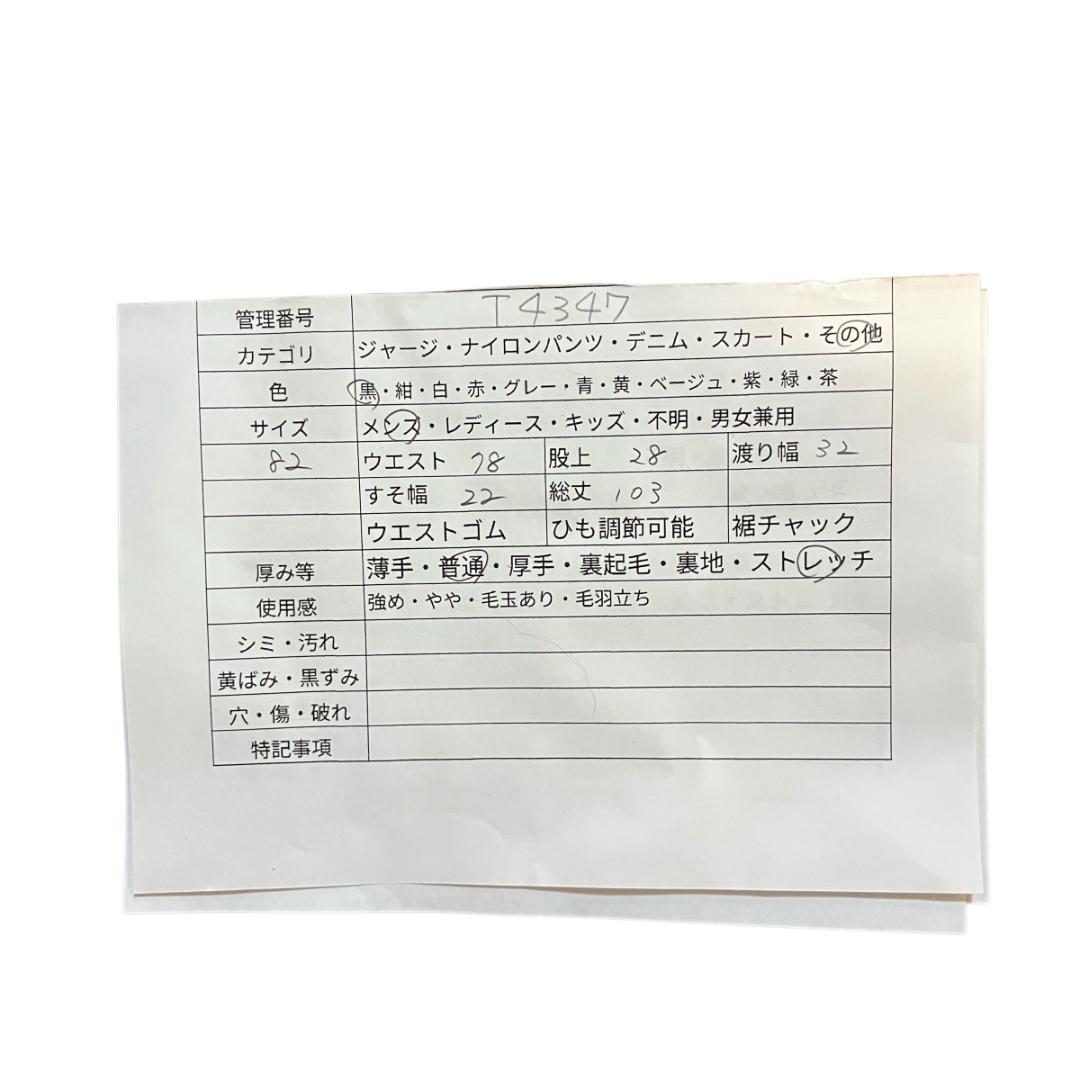 管理番号 T4347
カテゴリ ジャージ・ナイロンパンツ・デニム・スカート・その他
色 黒・紺・白・赤・グレー・青・黄・ベージュ・紫・緑・茶
サイズ メンズ・レディース・キッズ・不明・男女兼用
82 ウエスト 78 股上 28 渡り幅 32
すそ幅 22 総丈 103
ウエストゴム ひも調節可能 裾チャック
厚み等 薄手・普通・厚手・裏起毛・裏地・ストレッチ
使用感 強め・やや・毛玉あり・毛羽立ち
シミ・汚れ
黄ばみ・黒ずみ
穴・傷・破れ
特記事項